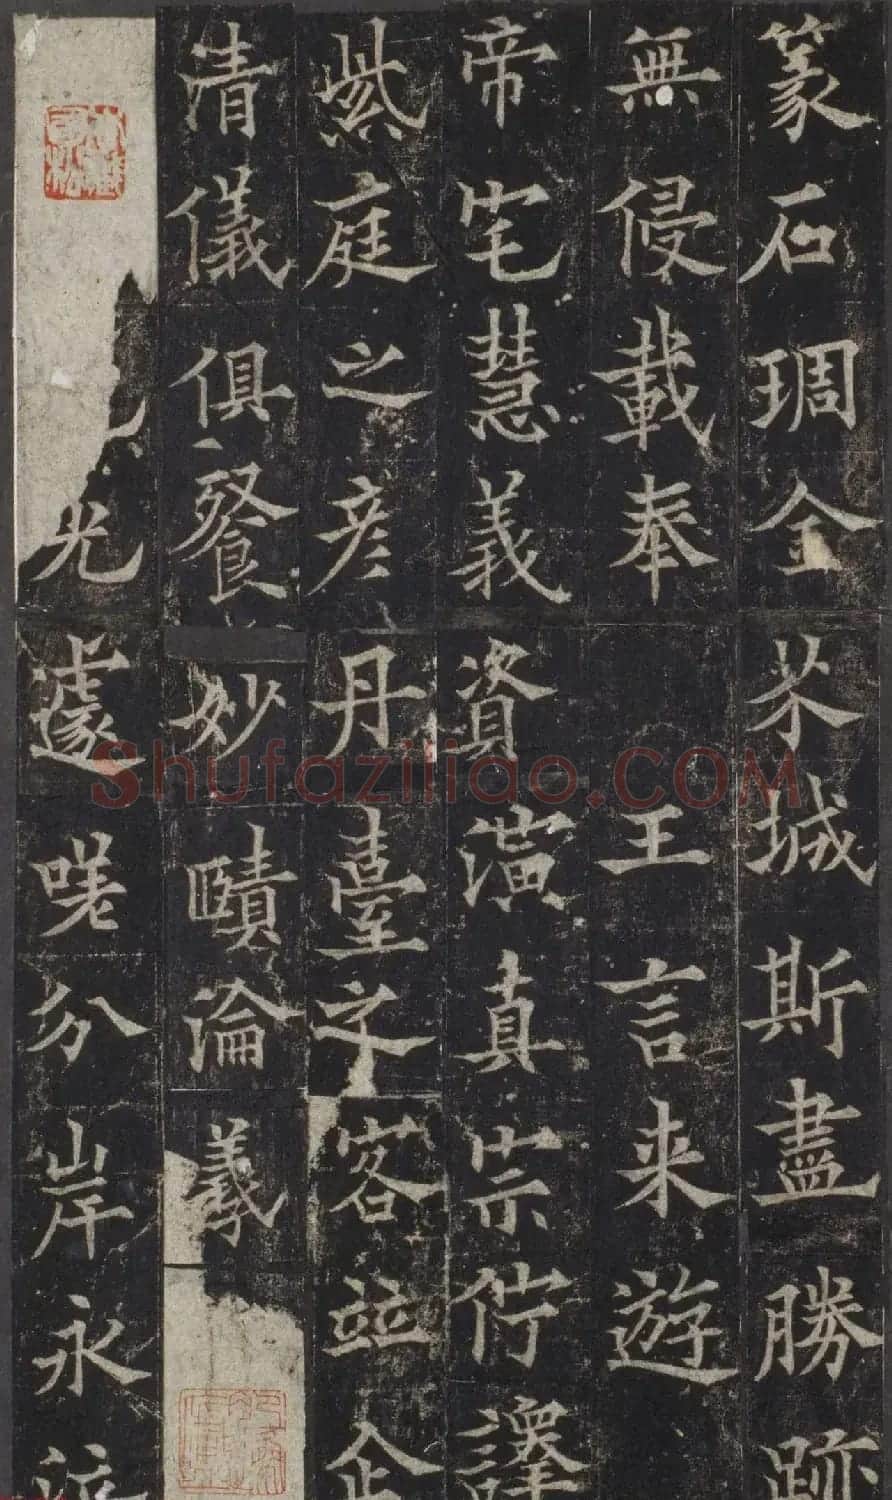 篆石琱金芥城斯盡勝跡
無侵載奉 王言来遊
帝宅慧義資演真宗佇譯
紫庭之彦丹臺之客並企
清儀俱餐妙賾淪羲
光遽嗟分岸永
Shufaziliao.COM